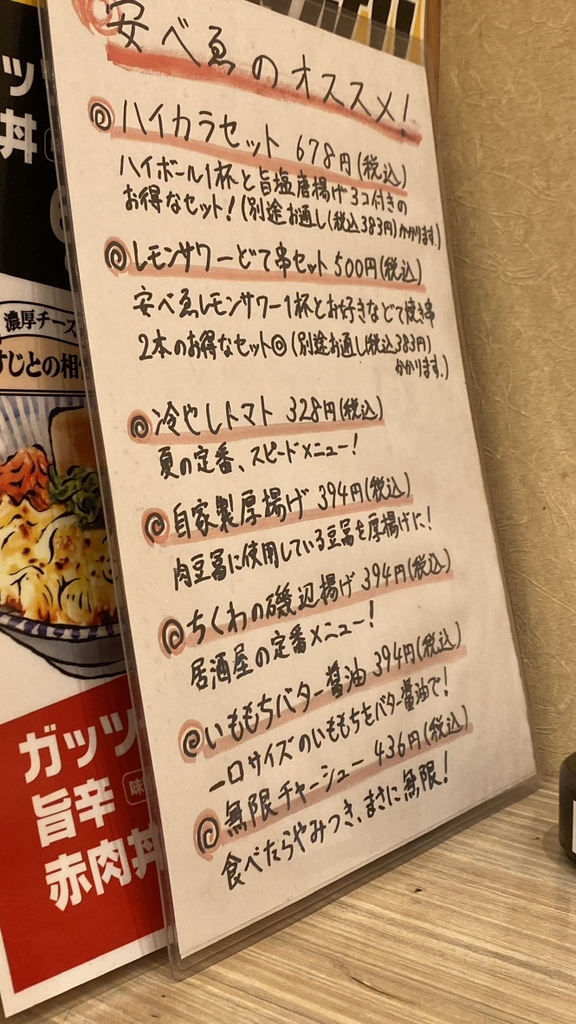 安べゑのオススメ!
◎ハイカラセット 678円(税込)
ハイボール1杯と旨塩唐揚げ3コ付きの
お得なセット!(別途お通し(税込383円)かかります。)
◎レモンサワーどて串セット 500円(税込)
安べゑレモンサワー1杯とお好きなどて焼き串
2本のお得なセット◎(別途お通し(税込383円)
かかります。)
◎冷やしトマト 328円(税込)
夏の定番、スピードメニュー!
◎自家製厚揚げ 394円(税込)
肉豆冨に使用している豆冨を厚揚げに!
◎ちくわの磯辺揚げ 394円(税込)
居酒屋の定番メニュー!
◎いももちバター醤油 394円(税込)
一口サイズのいももちをバター醤油で!
◎無限チャーシュー 436円(税込)
食べたらやみつき、まさに無限!
丼
濃厚チーズ
すじとの相
ガッツ
旨辛
味
赤肉丼